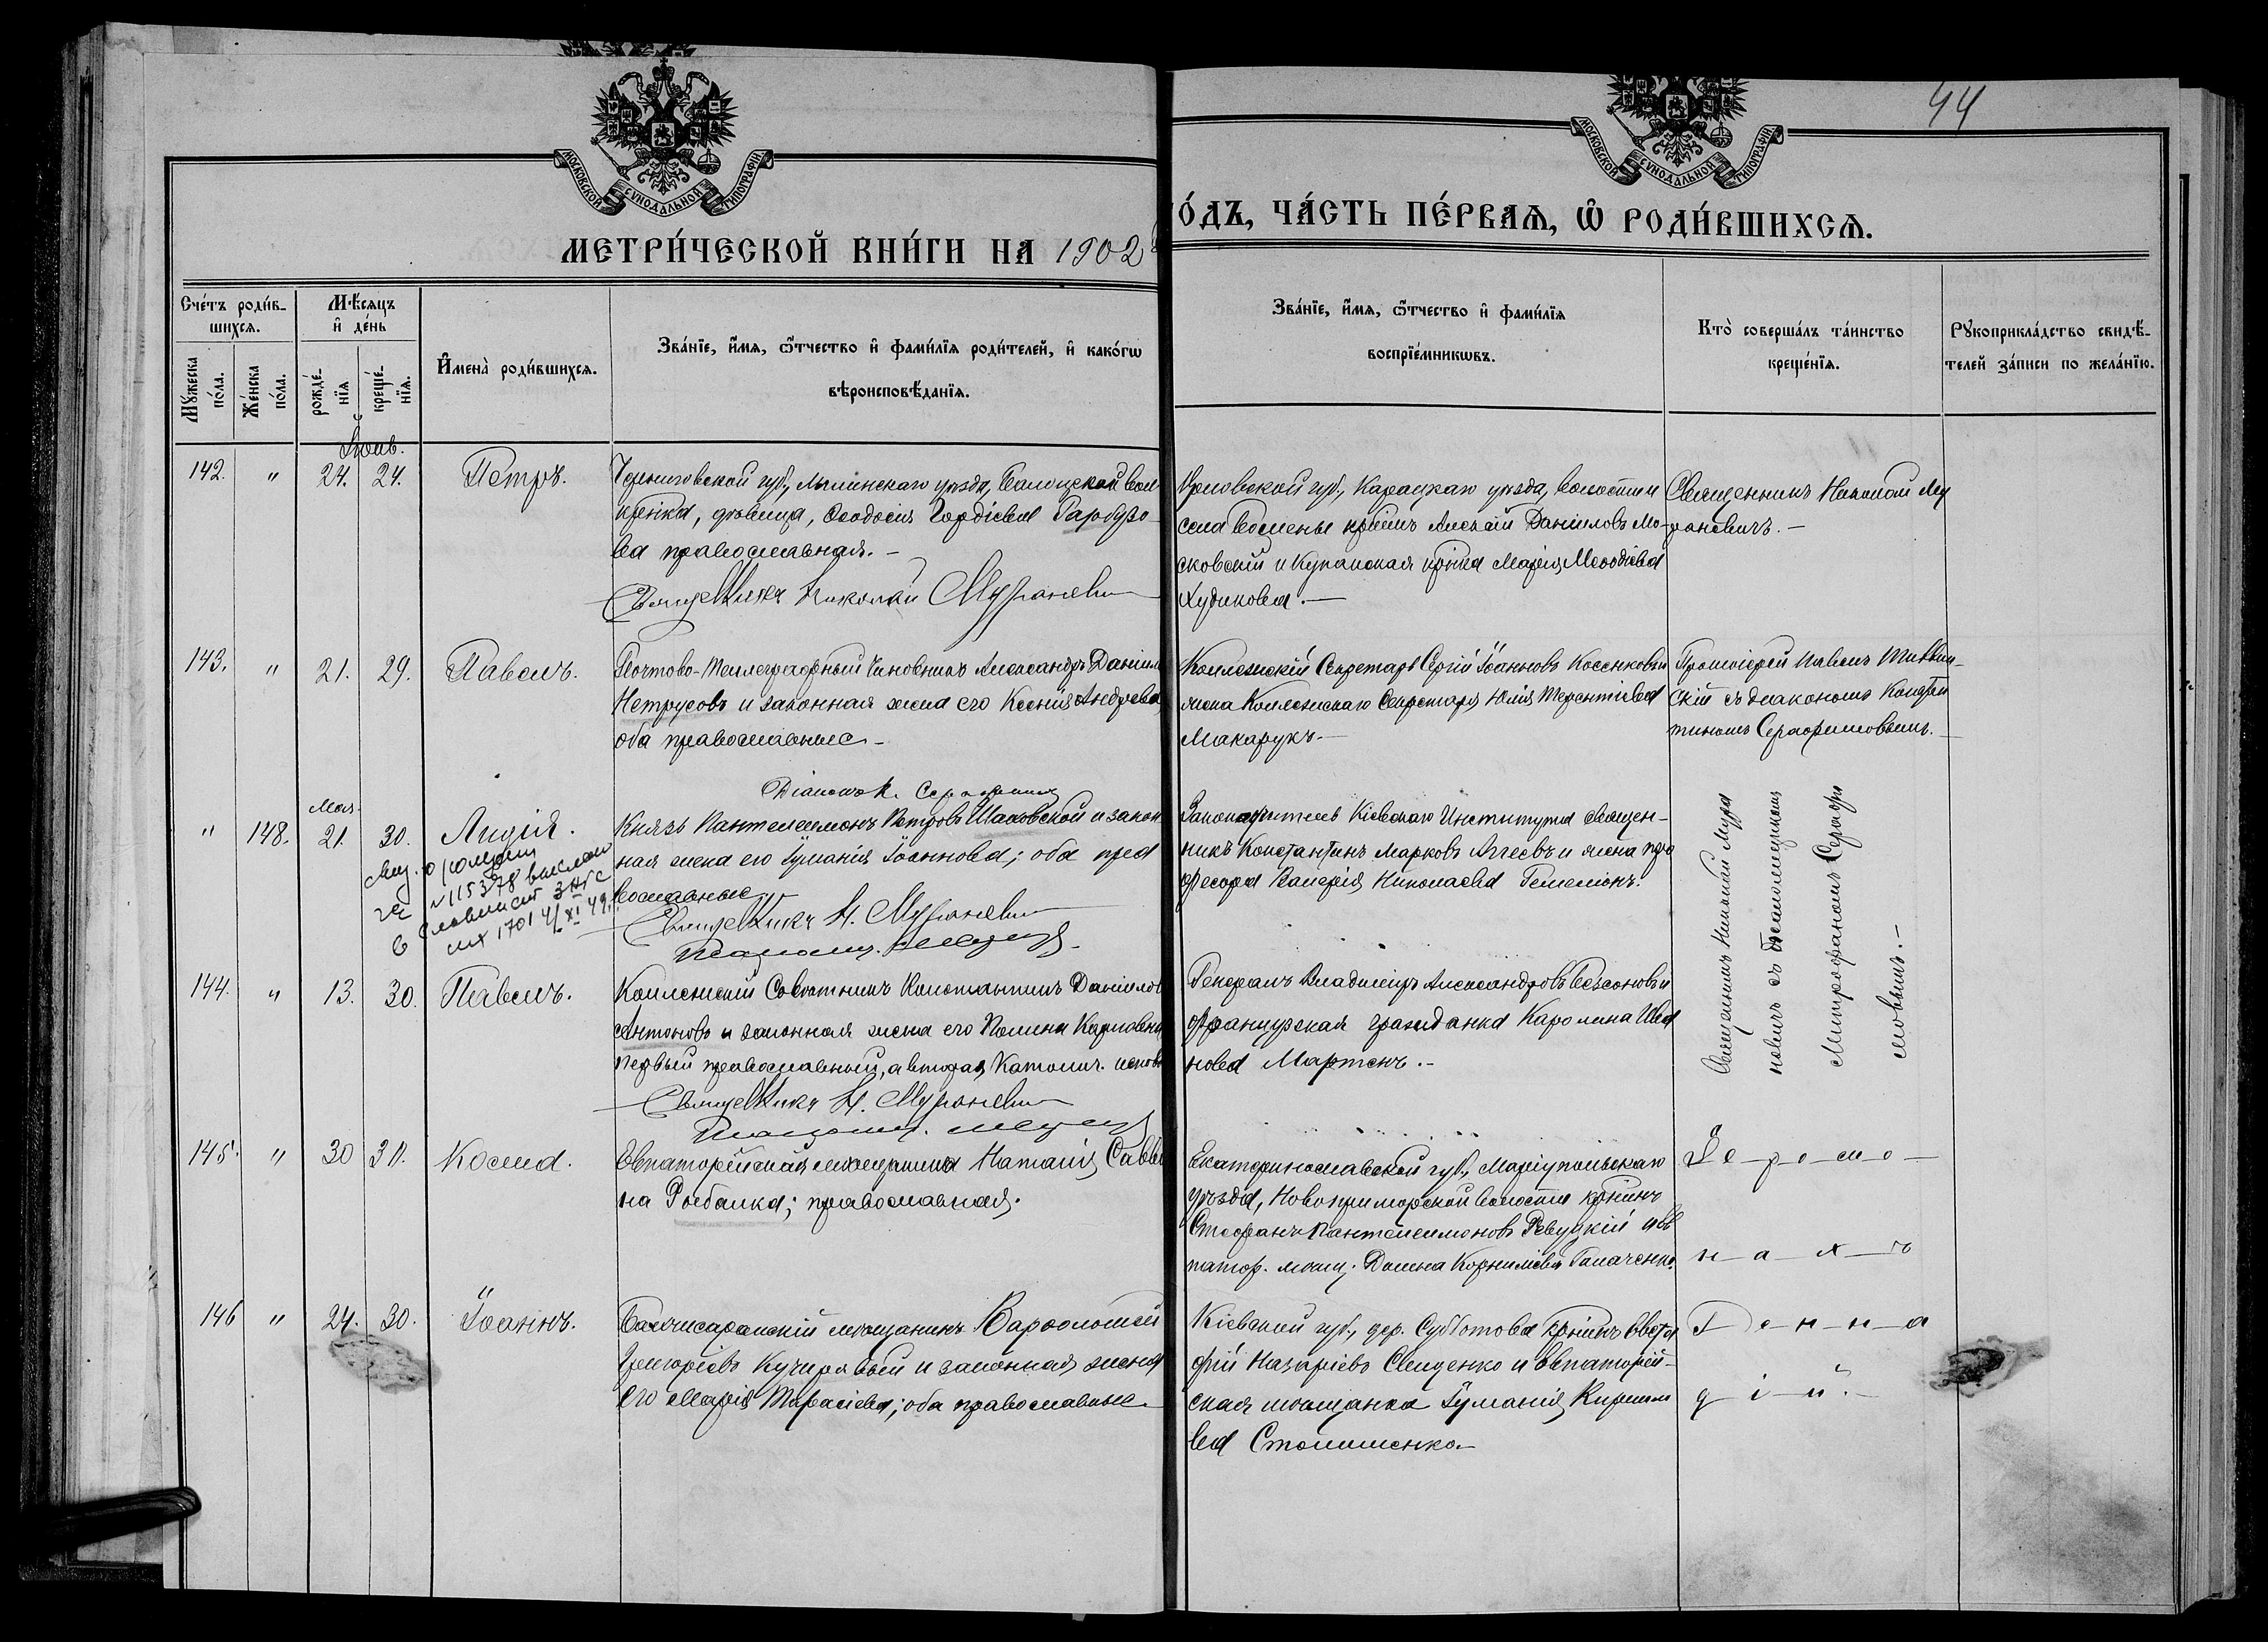 44
МОСКОВСКОЙ СѴНОДАЛЬНОЙ ТИПОГРАФІИ.
МОСКОВСКОЙ СѴНОДАЛЬНОЙ ТИПОГРАФІИ.
МЕТРИ́ЧЕСКОЙ КНИ́ГИ НА 1902
ГО́ДЪ, ЧА́СТЬ ПЕ́РВАЯ, Ѽ РОДИ́ВШИХСЯ.
Сче́тъ роди́в-
шихся.
Мꙋжеска по́ла.
Же́нска по́ла.
Мѣ́сяцъ
и҆ де́нь
рожде́-
нїя
креще́-
нїя.
И҆мена̀ роди́вшихся.
Зва́нїе, и҆́мя, ѻ҆́тчество и҆ фами́лїя роди́телей, и҆ како́гѡ
вѣроисповѣ́данїя.
Зва́нїе, и҆́мя, ѻ҆́тчество и҆ фами́лїя
воспрїе́мникѡвъ.
Кто̀ соверша́лъ та́инство
креще́нїя.
Рꙋкоприкла́дство свидѣ́-
телей за́писи по жела́нїю.
Іюнь.
142. " 24. 24. Петръ.
Черниговской губ., Мглинскаго уѣзда,
крѣнка, дѣвица, Ѳеодосія Гордіева
ва православная. –
Священникъ Николай Мураневич
Орловской губ., Карачкаго уѣзда, волости и
села крѣнинъ Алексѣй Даніиловъ Мо-
сковскій и Купянская крѣнка Марія Меѳодіева
Худикова. –
Священникъ Николай Му
раневичъ. –
143. " 21. 29. Павелъ.
Почтово-Телеграфный Чиновникъ Александръ Даніил
Нетрусовъ и законная жена его Ксенія Андреева,
оба православные –
Коллежскій Секретарь Сергій Іоанновъ Косенковъ и
жена Коллежскаго Секретаря Юлія Терентіева
Макарукъ. –
Протоіерей Павелъ
скій съ діакономъ Констан
тиномъ Серафимовымъ. –
Мая.
" 148. 21. 30. Лидія.
о рожден
№ 115378 выслано
в ЗАГС
исх 1701 4/XI 49.
Діаконъ К. Серафимов
Князь Пантелеимонъ Петровъ Шаховской и закон
ная жена его Іуліанія Іоаннова; оба пра
вославные
Священникъ Н. Мураневич
Законоучитель Кіевскаго Института священ-
никъ Константинъ Марковъ Аггеевъ и жена про
фессора Валерія Николаева Гемеліонъ.
Священникъ Николай Мура
невичъ съ
Митрофаномъ Серафи
мовымъ. –
144. " 13. 30. Павелъ.
Коллежскій Совѣтникъ Константинъ Даніилов
Антоновъ и законная жена его Полина Карловна
первый православный, а вторая Католич. испов
Священникъ Н. Мураневич
Генералъ Владиміръ Александровъ Безсоновъ и
Французская гражданка Каролина Ива
нова Мартенъ. –
145. " 30 30. Косма.
Евпаторійская мѣщанка Наталія Савви
на Рыбалка; православная.
Екатеринославской губ., Маріупольскаго
уѣзда, Новопригорской волости крѣнинъ
Стефанъ Пантелеимоновъ Ревуцкій и Ев
патор. мѣщ. Домна Корниліева
І е – р – о – м – о –
н – а – х – ъ
146 " 24. 30. Іоаннъ.
Бахчисарайскій мѣщанинъ Варѳоломей
Григоріевъ Кучерявый и законная жена
его Марія Тарасіева; оба православные –
Кіевской губ., дер. Субботова крѣнинъ Евста
фій Назаріевъ Свиденко и Евпаторій-
ская мѣщанка Іуліанія Кирилло
ва Столишенко. –
Г – е – н – н – а
д – і – й. –